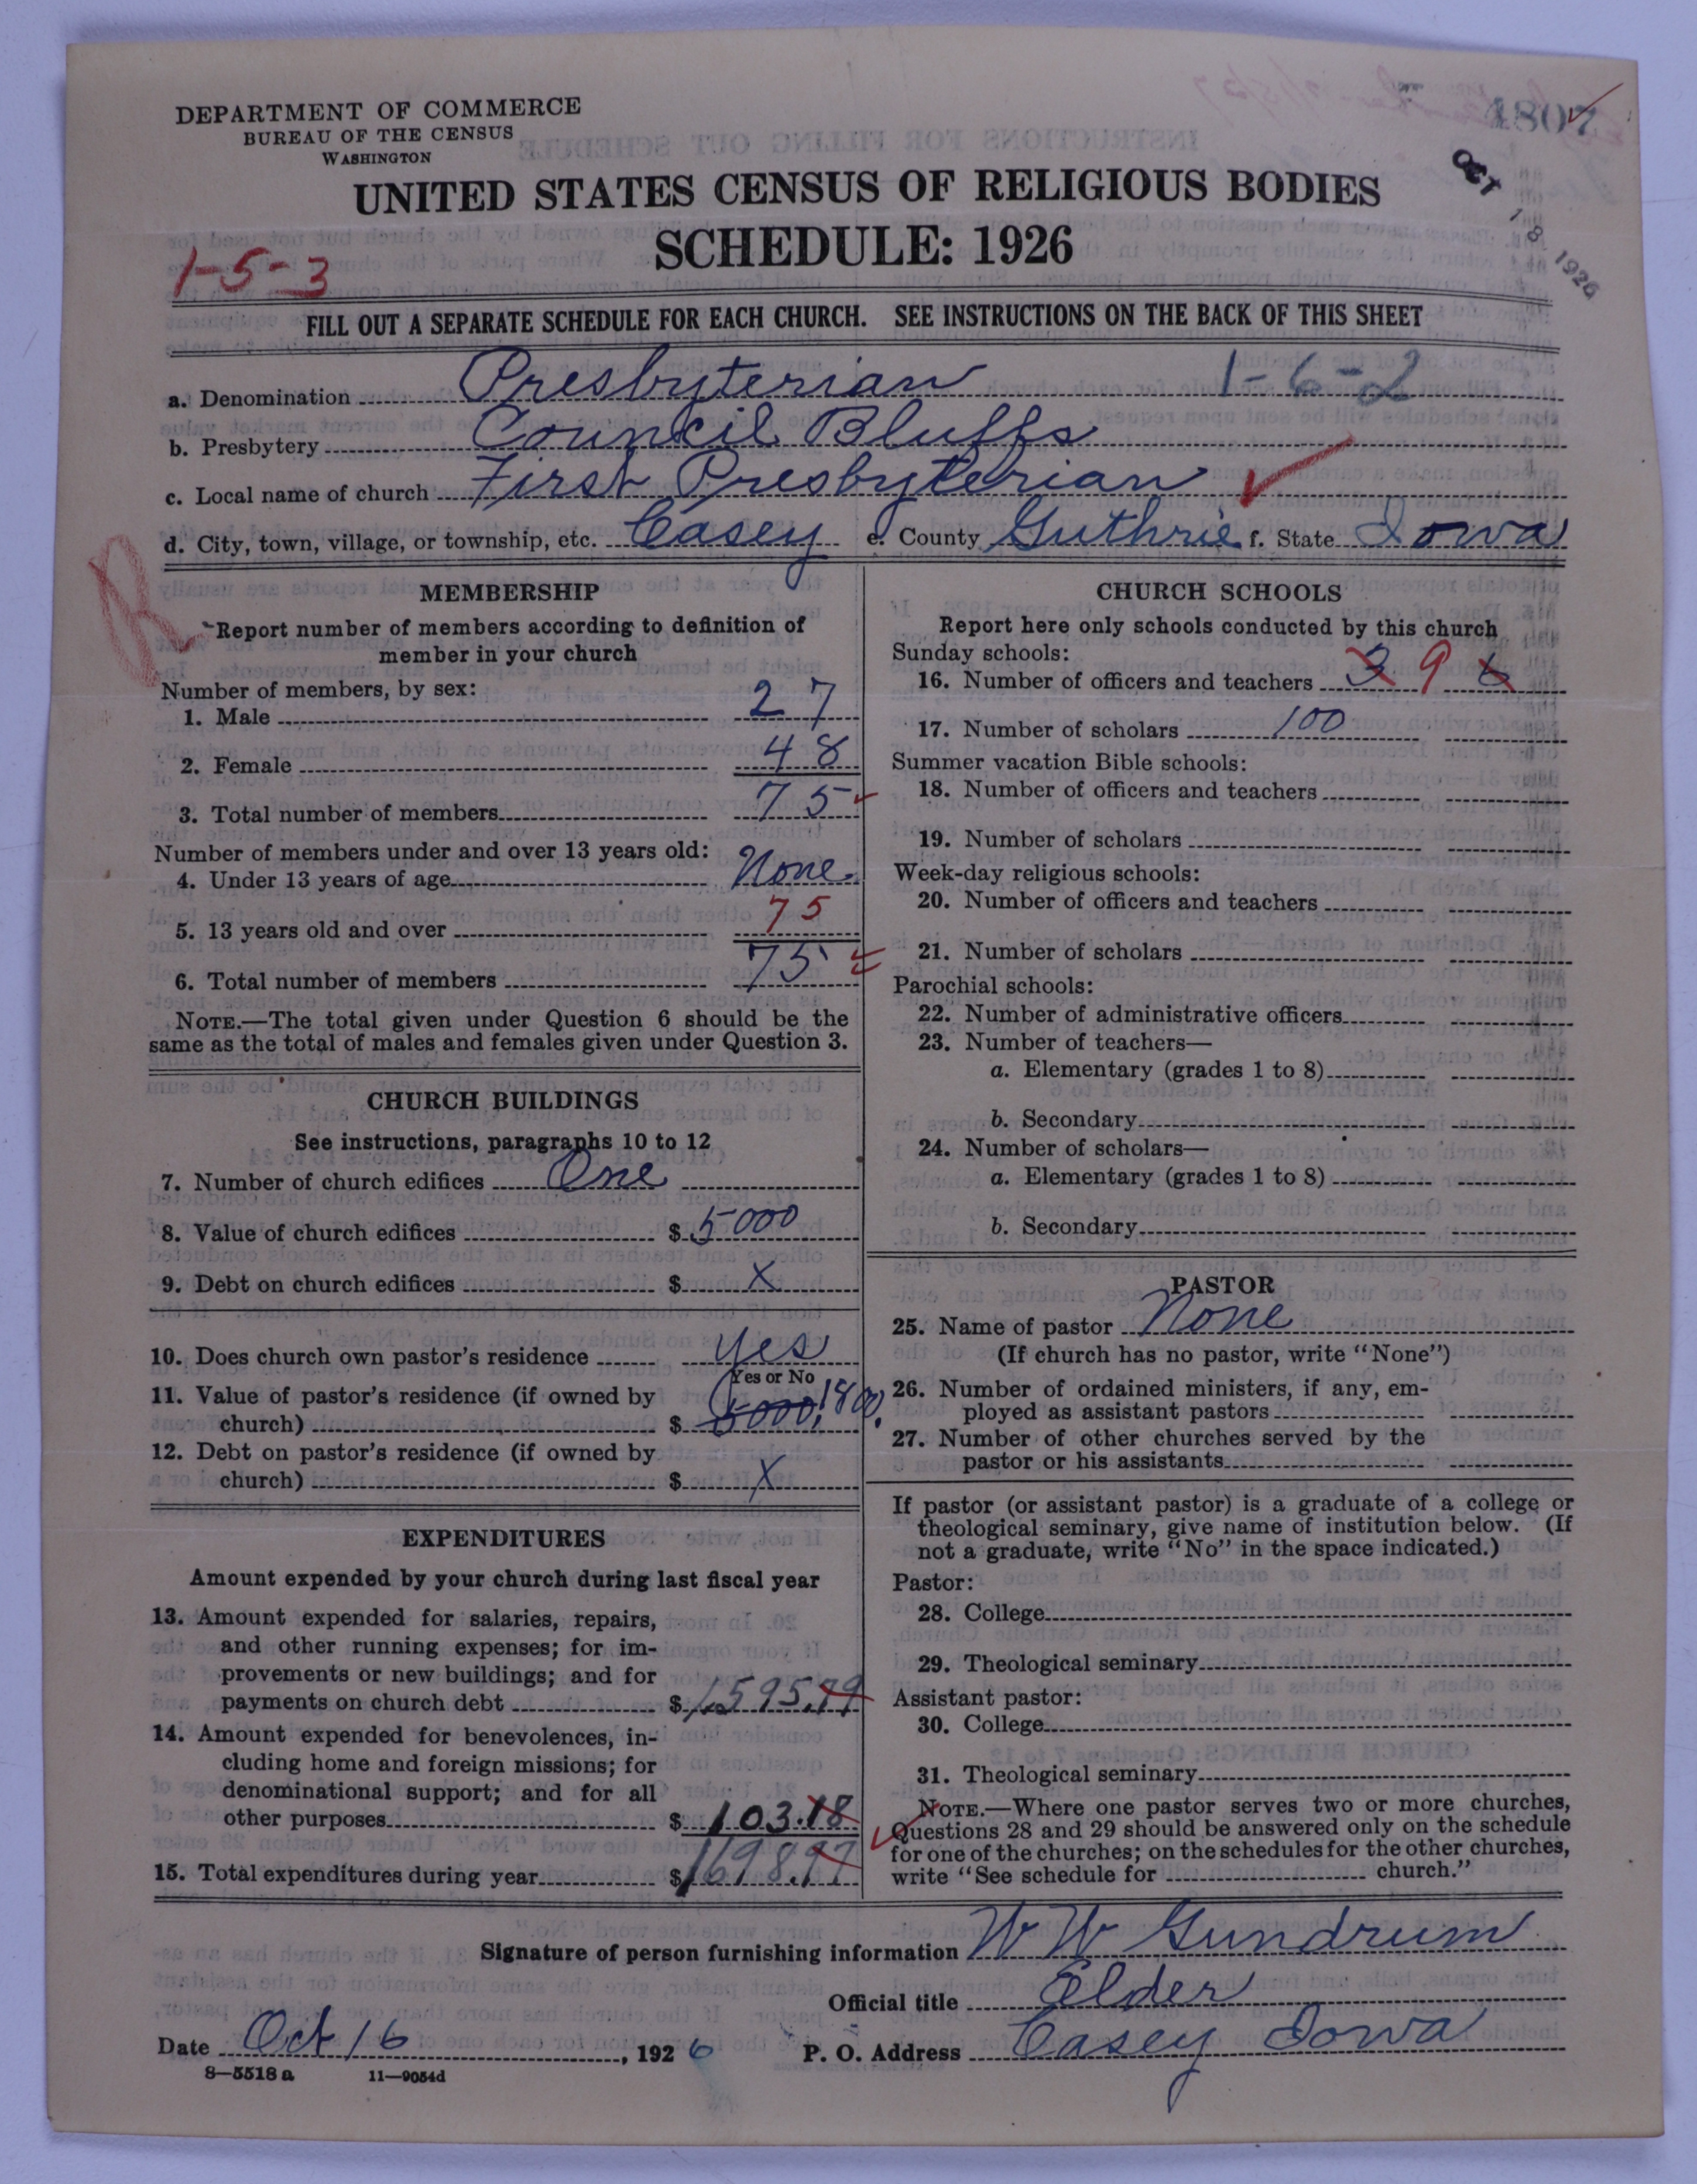 DEPARTMENT OF COMMERCE
BUREAU OF THE CENSUS
WASHINGTON
4807
OCT 18 1926
UNITED STATES CENSUS OF RELIGIOUS BODIES
SCHEDULE: 1926
1-5-3
FILL OUT A SEPARATE SCHEDULE FOR EACH CHURCH. SEE INSTRUCTIONS ON THE BACK OF THIS SHEET
a. Denomination Presbyterian 1-6-2
b. Presbytery Council Bluffs
c. Local name of church First Presbyterian
d. City, town, village, or township, etc. Casey e. County Guthrie f. State Iowa
R
MEMBERSHIP
Report number of members according to definition of
member in your church
Number of members, by sex:
1. Male 27
2. Female 48
3. Total number of members 75
Number of members under and over 13 years old:
4. Under 13 years of age None
5. 13 years old and over 75
6. Total number of members 75
NOTE.—The total given under Question 6 should be the
same as the total of males and females given under Question 3.
CHURCH BUILDINGS
See instructions, paragraphs 10 to 12
7. Number of church edifices One
8. Value of church edifices $ 5000
9. Debt on church edifices $ X
10. Does church own pastor's residence Yes
Yes or No
11. Value of pastor's residence (if owned by
church) $ 5000 1800.
12. Debt on pastor's residence (if owned by
church) $ X
EXPENDITURES
Amount expended by your church during last fiscal year
13. Amount expended for salaries, repairs,
and other running expenses; for im-
provements or new buildings; and for
payments on church debt $ 1595.79
14. Amount expended for benevolences, in-
cluding home and foreign missions; for
denominational support; and for all
other purposes $ 103.18
15. Total expenditures during year $ 1698.97
CHURCH SCHOOLS
Report here only schools conducted by this church
Sunday schools:
16. Number of officers and teachers 3 9 6
17. Number of scholars 100
Summer vacation Bible schools:
18. Number of officers and teachers
19. Number of scholars
Week-day religious schools:
20. Number of officers and teachers
21. Number of scholars
Parochial schools:
22. Number of administrative officers
23. Number of teachers—
a. Elementary (grades 1 to 8)
b. Secondary
24. Number of scholars—
a. Elementary (grades 1 to 8)
b. Secondary
PASTOR
25. Name of pastor None
(If church has no pastor, write "None")
26. Number of ordained ministers, if any, em-
ployed as assistant pastors
27. Number of other churches served by the
pastor or his assistants
If pastor (or assistant pastor) is a graduate of a college or
theological seminary, give name of institution below. (If
not a graduate, write "No" in the space indicated.)
Pastor:
28. College
29. Theological seminary
Assistant pastor:
30. College
31. Theological seminary
NOTE.—Where one pastor serves two or more churches,
Questions 28 and 29 should be answered only on the schedule
for one of the churches; on the schedules for the other churches,
write "See schedule for church."
Signature of person furnishing information W W Gundrum
Official title Elder
Date Oct 16, 1926 P. O. Address Casey Iowa
8—5518 a 11—9054d